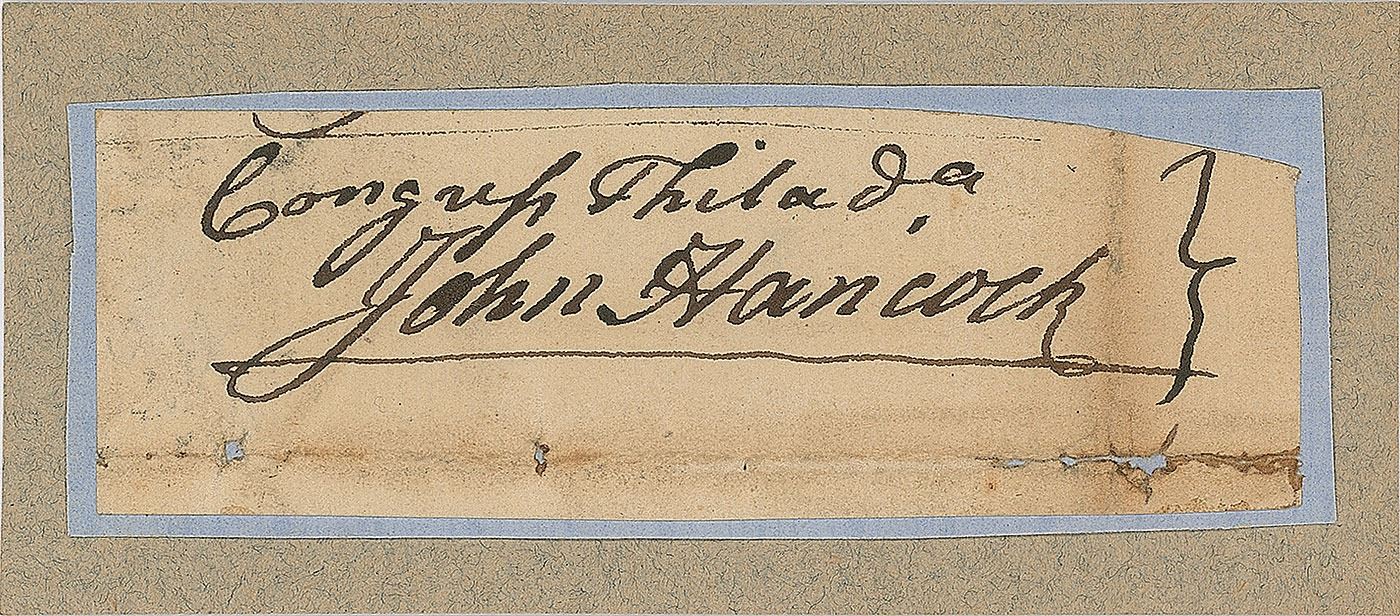 Congress Philad.a
John Hancock